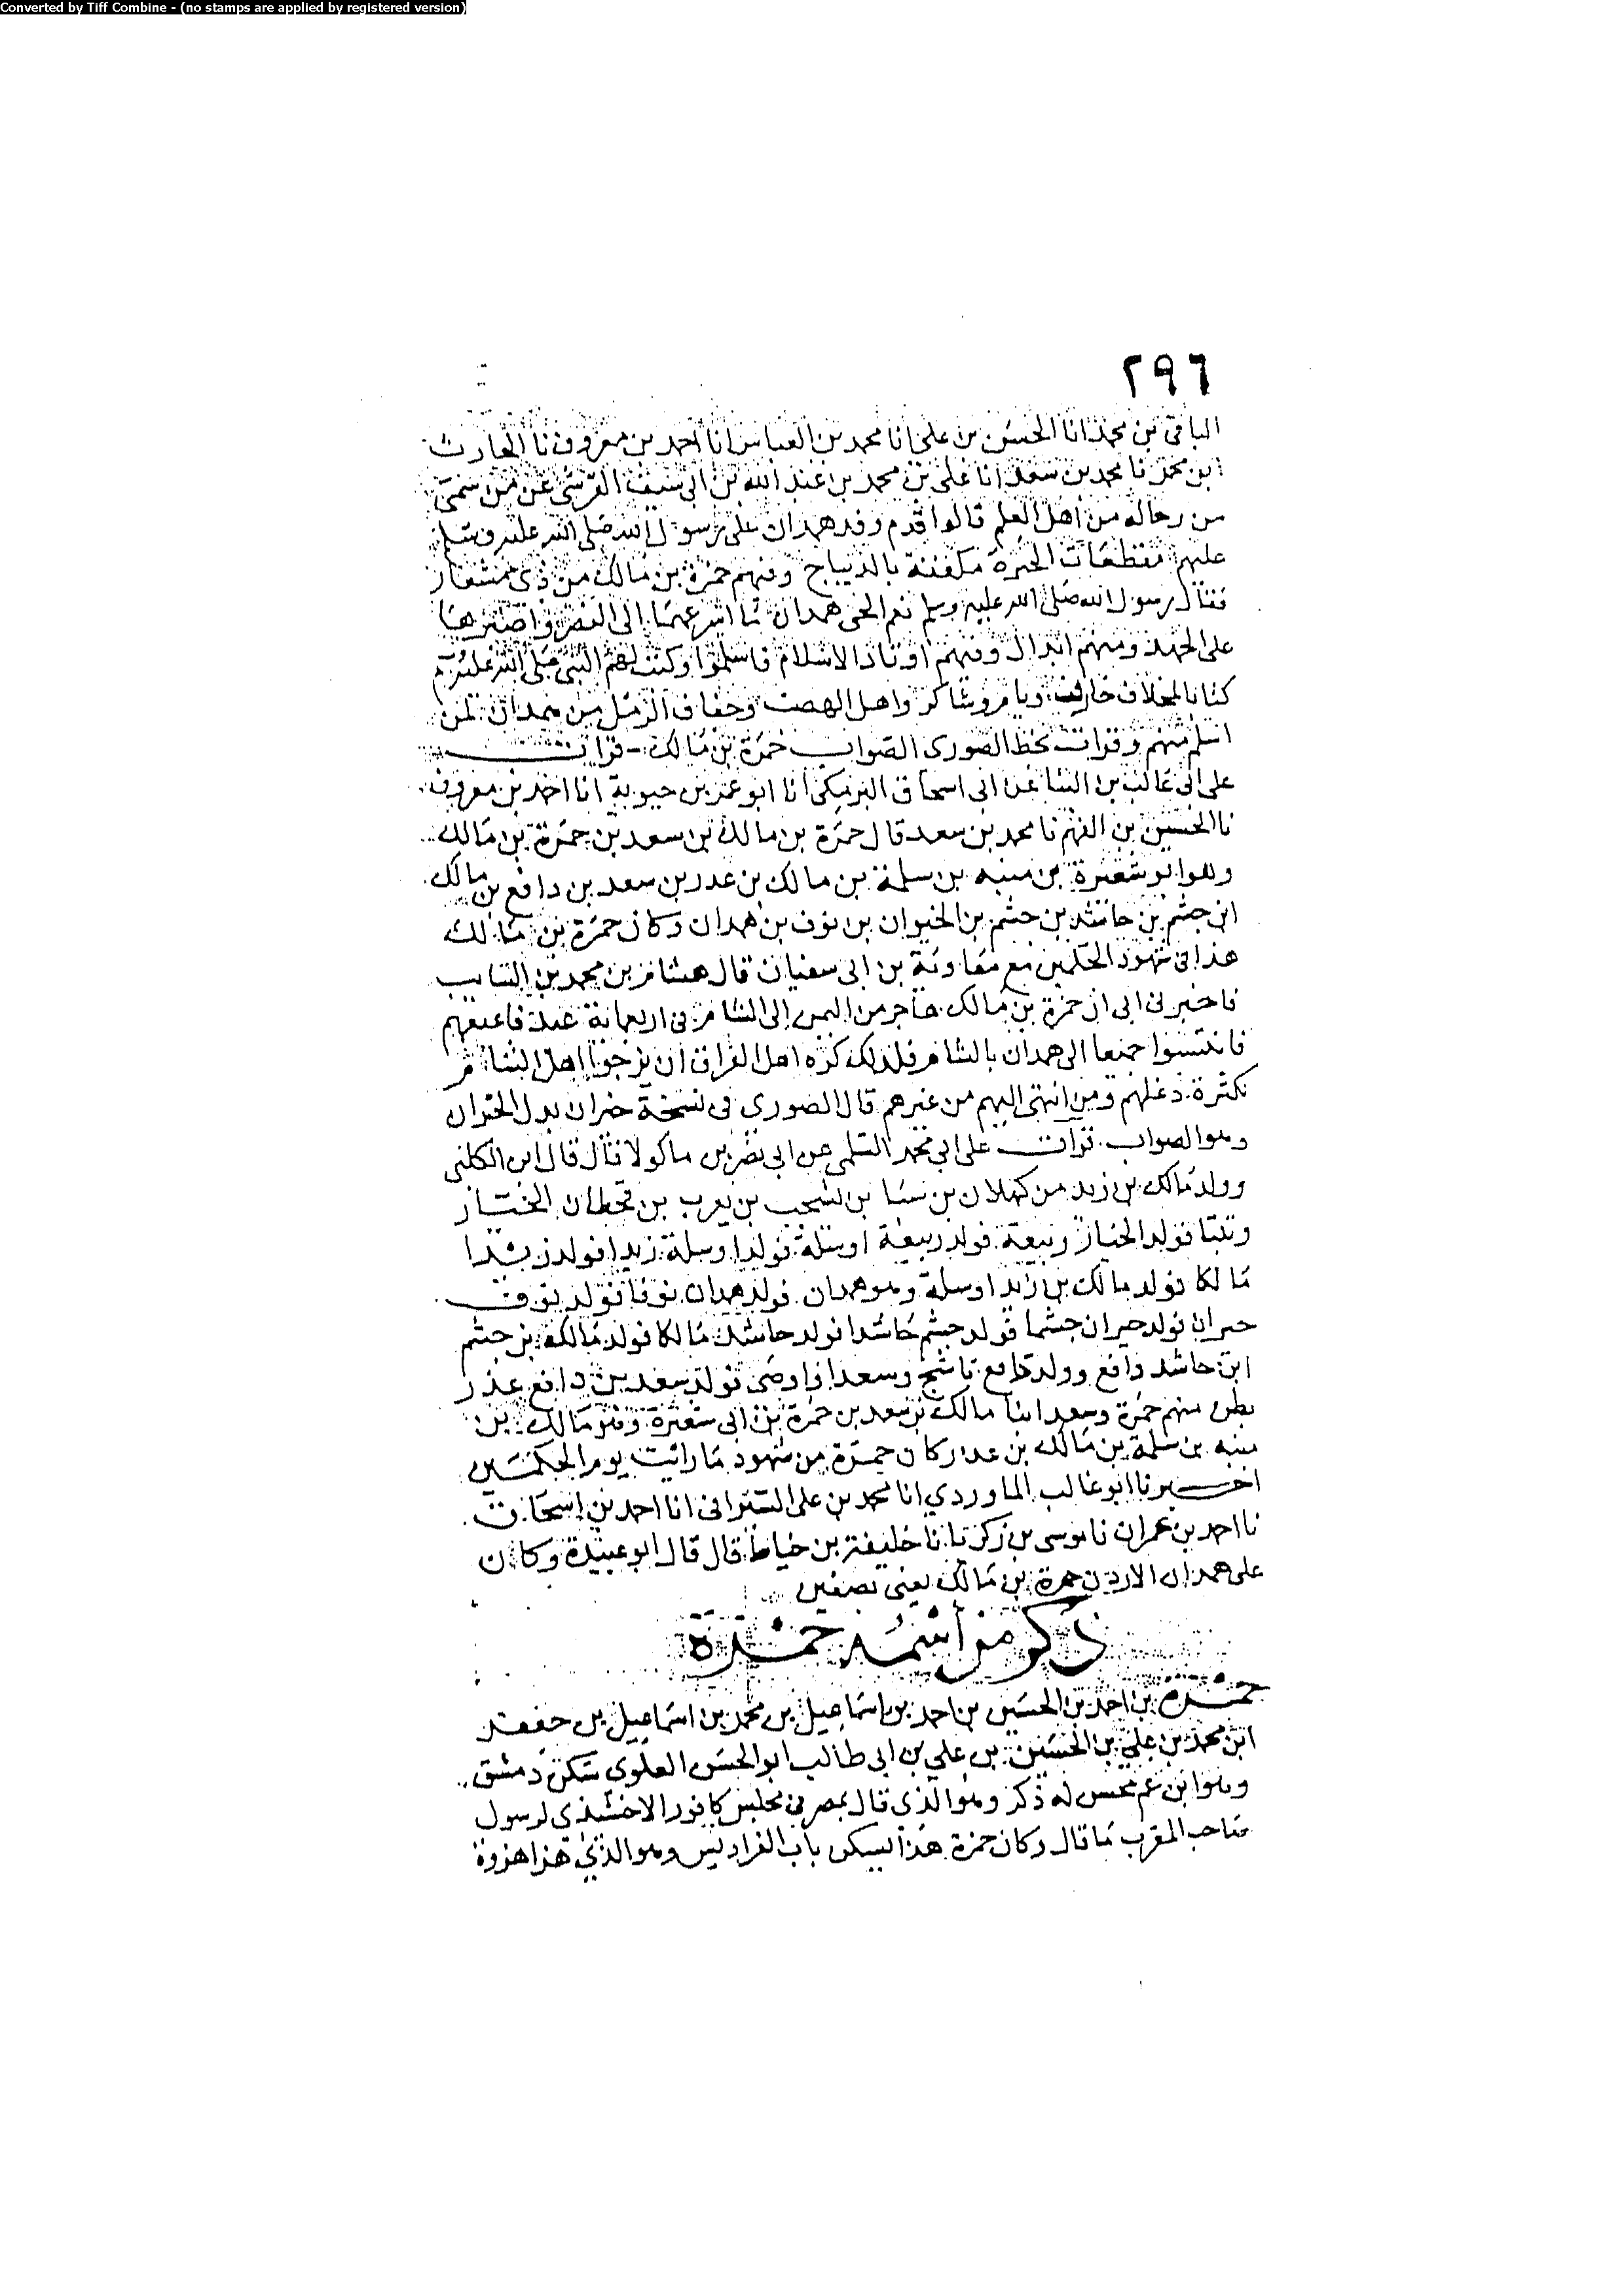 Converted by Tiff Combine - (no stamps are applied by registered version)
٢٩٦
الباقي بن محمد انا الحسن بن علي انا محمد بن العباس انا احمد بن معروف نا الحارث
ابن محمد نا محمد بن سعد انا علي بن محمد بن عبد الله بن ابي سيف القرشي عن من سمى
من رجاله من اهل العلم قالوا قدم وفد همدان على رسول الله صلى الله عليه وسلم
عليهم مقطعات الحبرة مكففة بالديباج وفيهم حمزة بن مالك من ذي مشعار
فقال رسول الله صلى الله عليه وسلم نعم الحي همدان ما اسرعها الى النصر واصبرها
على الجهد ومنهم ابدال وفيهم اوتاد الاسلام فاسلموا وكتب لهم النبي صلى الله عليه
كتابا لمخلاف خارف ويام وشاكر واهل الهضب وحقاف الرمل من همدان لمن
اسلم منهم وقرات بخط الصوري الصواب حمزة بن مالك - قرات
على ابي غالب بن البنا عن ابي اسحاق البرمكي انا ابو عمر بن حيوية انا احمد بن معروف
نا الحسين بن الفهم نا محمد بن سعد قال حمزة بن مالك بن سعد بن حمزة بن مالك
وهو ابو شعيرة بن منبه بن سلمة بن مالك بن عدر بن سعد بن دافع بن مالك
ابن جشم بن حاشد بن جشم بن الخيوان بن نوف بن همدان وكان حمزة بن مالك
هذا في شهود الحكمين مع معاوية بن ابي سفيان قال هشام بن محمد بن السايب
فاخبرني ابي ان حمزة بن مالك هاجر من اليمن الى الشام في اربعمائة عبد فاعتقهم
فانتسبوا جميعا الى همدان بالشام فلذلك كره اهل العراق ان يزوجوا اهل الشام
لكثرة دغلهم ومن انتهى اليهم من غيرهم قال الصوري في نسخة خيران بدل الخيران
وهو الصواب قرات على ابي محمد السلمي عن ابي نصر بن ماكولا قال قال ابن الكلبي
وولد مالك بن زيد من كهلان بن سبا بن يشجب بن يعرب بن قحطان الخيار
ونبتا فولد الخيار ربيعة فولد ربيعة اوسلة فولد اوسلة زيدا فولد زيد
مالكا فولد مالك بن زيد اوسلة وهو همدان فولد همدان نوفا فولد نوف
حبران فولد حبران جشما فولد جشم حاشدا فولد حاشد مالكا فولد مالك بن جشم
ابن حاشد دافع وولد دافع ناشج وسعدا فولد سعد بن دافع عذر
بطن منهم حمزة وسعد ابنا مالك بن سعد بن حمزة بن ابي شعيرة وهو مالك بن
منبه بن سلمة بن مالك بن عدر كان حمزة من شهود يوم الحكمين
اخبرنا ابو غالب الماوردي انا محمد بن علي السيرافي انا احمد بن اسحاق
نا احمد بن عمران نا موسى بن زكريا نا خليفة بن خياط قال قال ابو عبيدة وكان
على همدان الاردن حمزة بن مالك يعني بصفين
ذكر من اسمه حمزة
حمزة بن احمد بن الحسين بن احمد بن اسماعيل بن محمد بن اسماعيل بن جعفر
ابن محمد بن علي بن الحسين بن علي بن ابي طالب ابو الحسن العلوي سكن دمشق
وهو ابن عم محسن له ذكر وهو الذي قال بمصر في مجلس كافور الاخشيذي لرسول
صاحب المقرب ما قال وكان حمزة هذا يسكن باب الفراديس وهو الذي